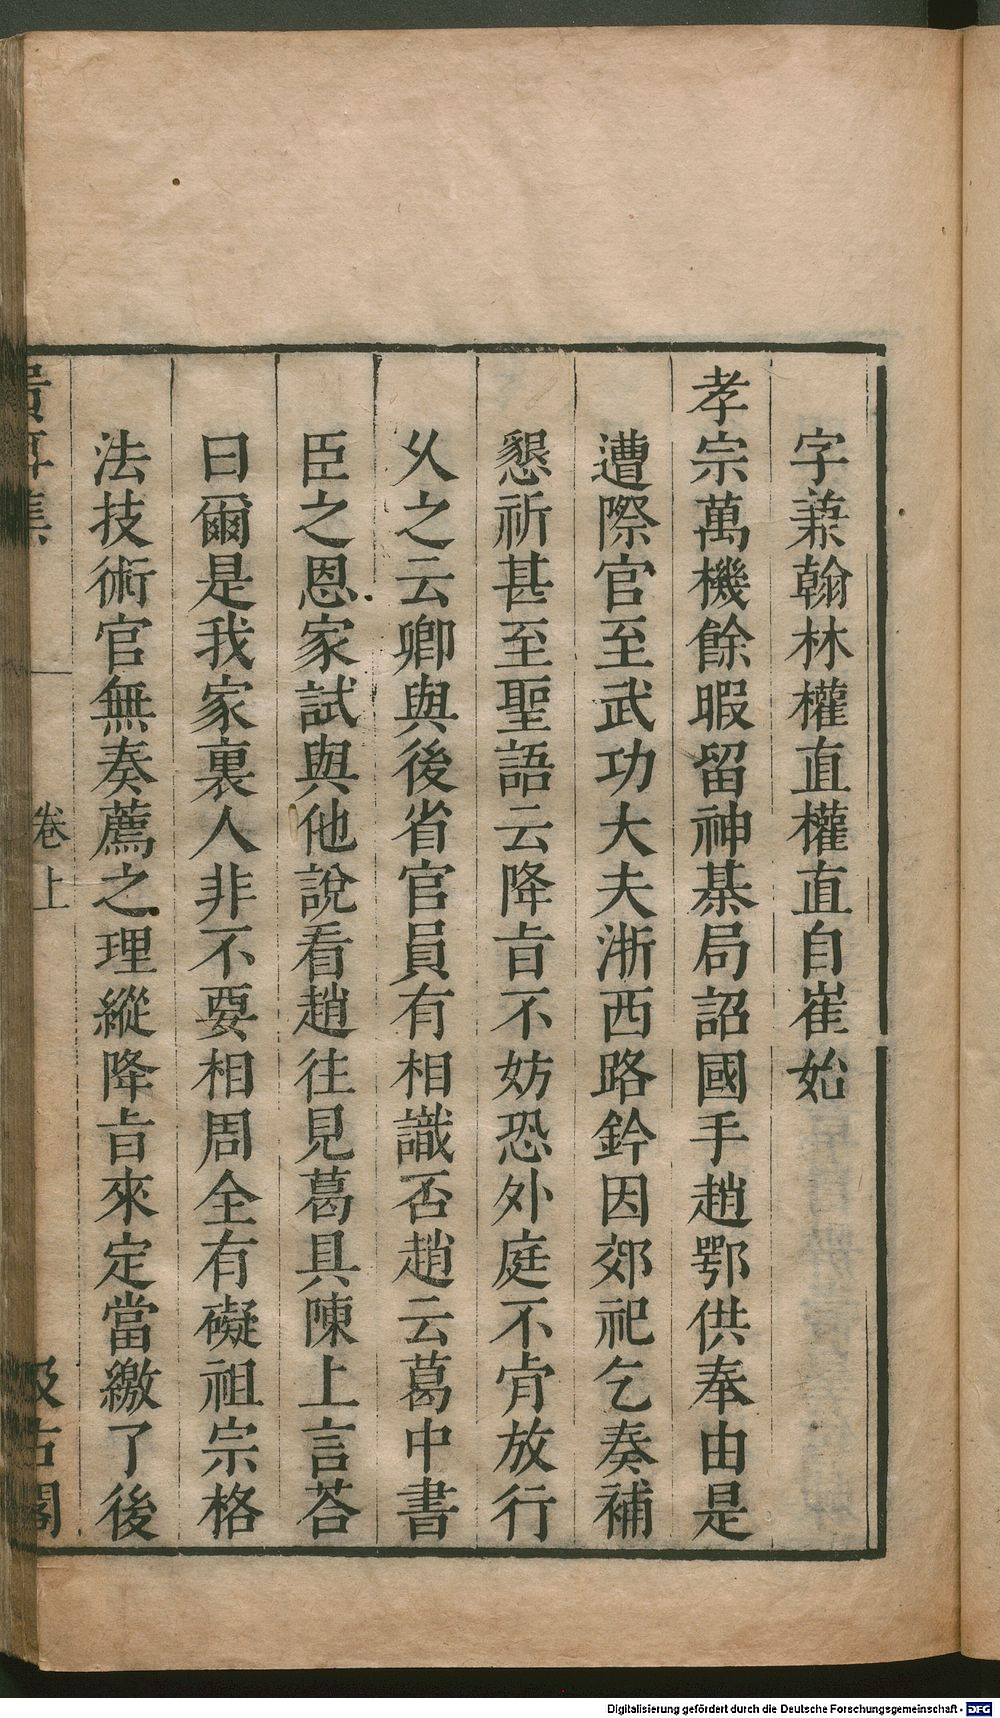 字兼翰林權直權直自崔始
孝宗萬機餘暇留神棊局詔國手趙鄂供奉由是
遭際官至武功大夫浙西路鈐因郊祀乞奏補
懇祈甚至聖語云降旨不妨恐外庭不肯放行
乆之云卿與後省官員有相識否趙云葛中書
臣之恩家試與他說看趙往見葛具陳上言荅
曰爾是我家裏人非不要相周全有礙祖宗格
法技術官無奏薦之理縱降旨來定當繳了後
貴耳集
卷上
汲古閣
Digitalisierung gefördert durch die Deutsche Forschungsgemeinschaft - DFG